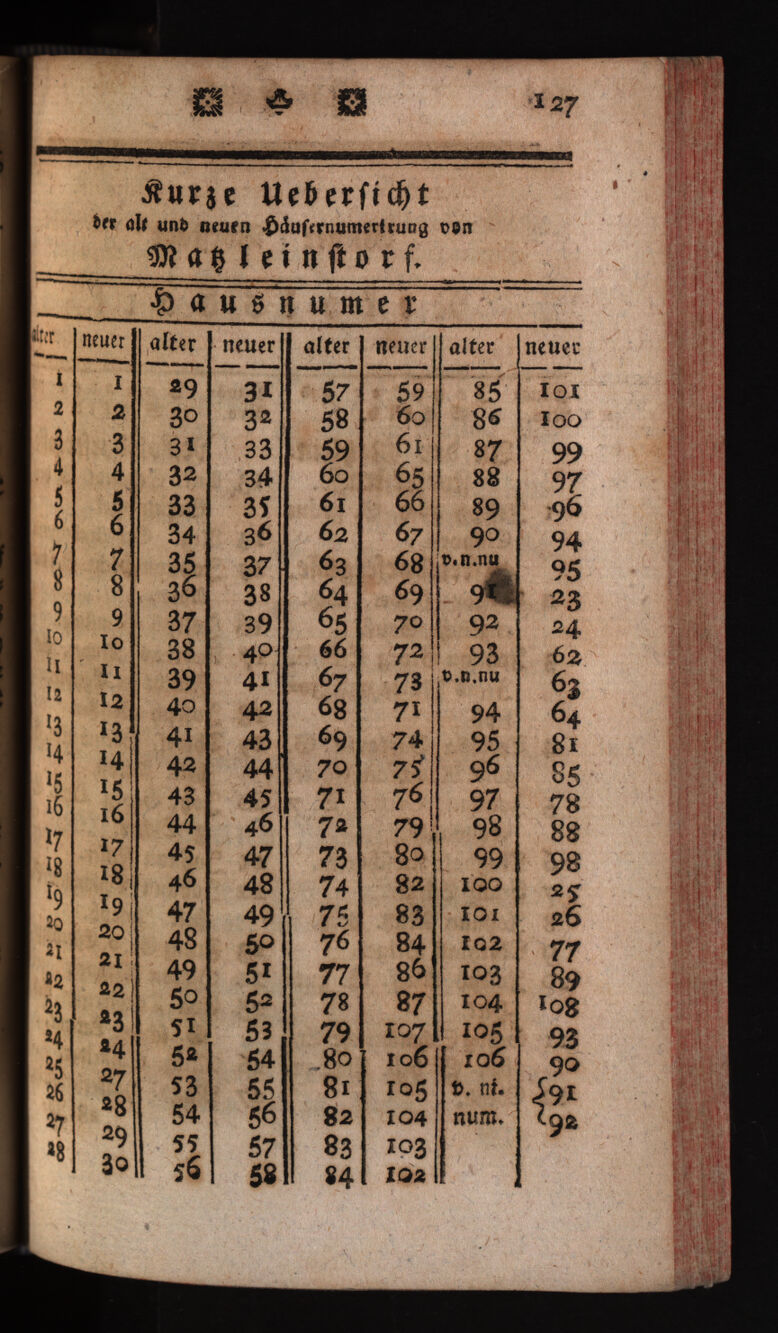 127
Kurze Uebersicht
der alt und neuen Häusernumerirung von
Matzleinstorf.
Hausnumer
alter neuer alter neuer alter neuer alter neuer
1 1 29 31 57 59 85 101
2 2 30 32 58 60 86 100
3 3 31 33 59 61 87 99
4 4 32 34 60 65 88 97
5 5 33 35 61 66 89 96
6 6 34 36 62 67 90 94
7 7 35 37 63 68 v.n.nu 95
8 8 36 38 64 69 91 23
9 9 37 39 65 70 92 24
10 10 38 40 66 72 93 62
11 11 39 41 67 73 v.n.nu 63
12 12 40 42 68 71 94 64
13 13 41 43 69 74 95 81
14 14 42 44 70 75 96 85
15 15 43 45 71 76 97 78
16 16 44 46 72 79 98 88
17 17 45 47 73 80 99 98
18 18 46 48 74 82 100 25
19 19 47 49 75 83 101 26
20 20 48 50 76 84 102 77
21 21 49 51 77 86 103 89
22 22 50 52 78 87 104 108
23 23 51 53 79 107 105 93
24 24 52 54 80 106 106 90
25 27 53 55 81 105 v. ni. {91
26 28 54 56 82 104 num. {92
27 29 55 57 83 103
28 30 56 58 84 102